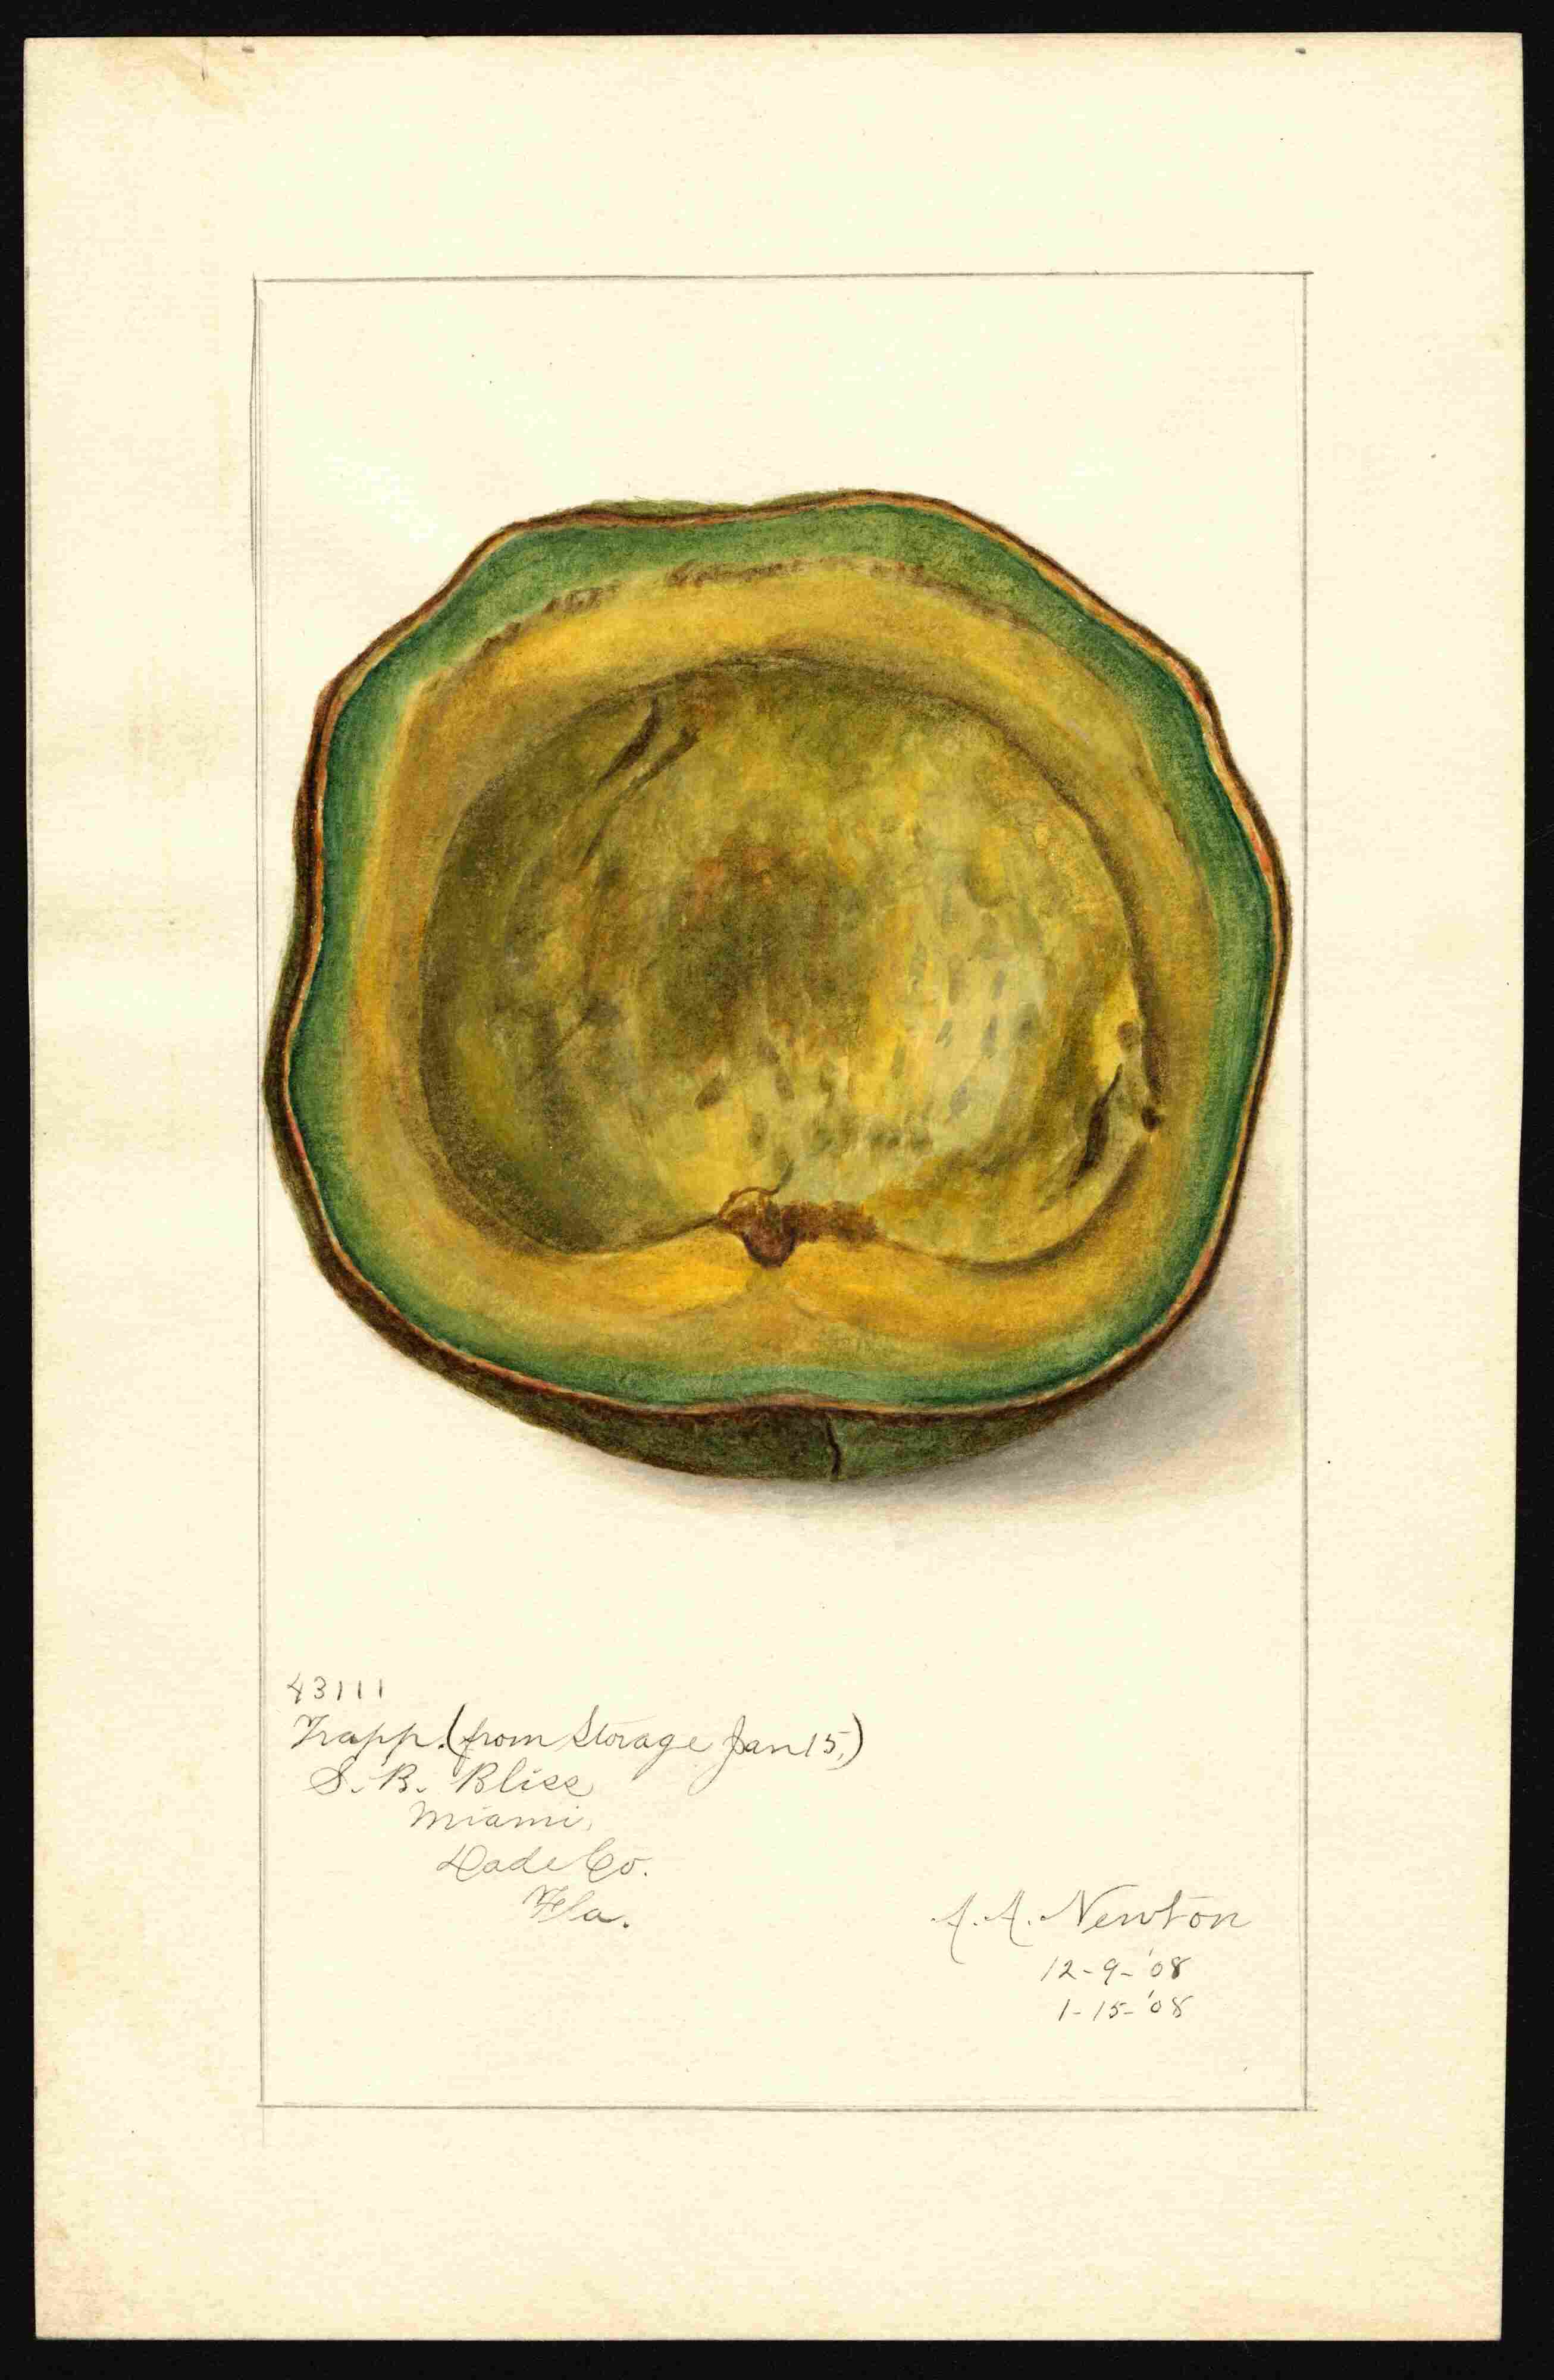 43111
Trapp. (from Storage Jan 15,)
S. B. Bliss
Miami,
Dade Co.
Fla.
A. A. Newton
12-9-'08
1-15-'08